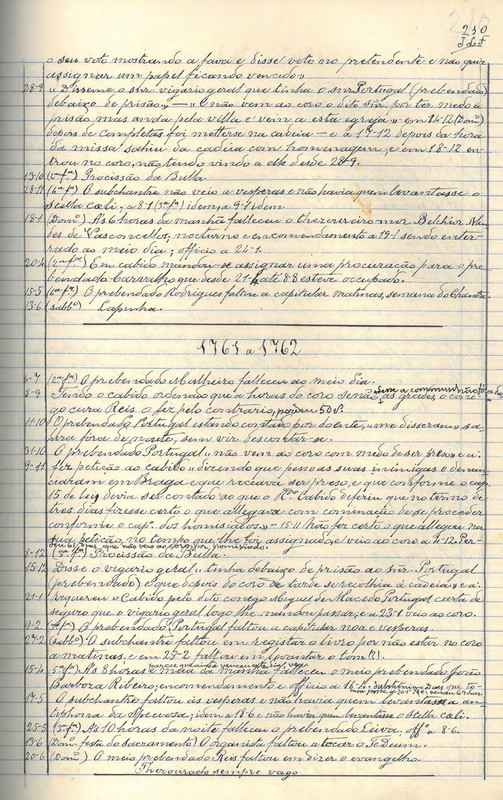 210
o seu voto mostrando a fava e disse voto no pretendente e não quiz
assignar um papel ficando vencido»
28-9 «Disseme o Snr. vigario geral que tinha o snr Portugal (prebendado)
debaixo de prisão» — «E não vem ao coro o dito Snr. por ter medo á
prisão mas anda pela villa e vem a esta egreja» em 14-12 (Domº)
depois de completas foi metterse na cadeia — e a 17-12 depois da hora
da missa sahiu da cadeia com homenagem, e em 18-12 en-
trou no coro, não tendo vindo a elle desde 28-9.
13-10 Procissão da Bulla
28-11 (6ª fª) O subchantre não veio a vesperas e não havia quem levantasse o
stella celi; a 8-1 (5ª fª) idem; a 9-1 idem
18-1 (Domº) Ás 6 horas da manhã falleceu o thezoureiro mor Belchior Nu-
nes de Vasconcellos, nocturno e encomendamento a 19-1 sendo enter-
rado ao meio dia; officio a 24-1.
20-4 (2ª fª) Em cabido mandou-se assignar uma procuração para o pre-
bendado Carvalho que desde 21-4 até 8-8 esteve occupado.
15-5 O prebendado Rodrigues faltou a capitular matinas, semana do Chantre.
13-6 (sabbº) Lapinha.
1761 a 1762
6-7 (2ª fª) O prebendado Malheiro falleceu ao meio dia.
8-9 Tendo o cabido ordenado que a horas do coro se não ás grades o cone-
go cura Reis o fez pelo contrario,
11-10 O prebendado Portugal estando contado por doente, «me disseram» sa-
hira fóra de noute, sem vir descontar-se.
31-10 O prebendado Portugal «não vem ao coro com medo de ser preso» e a
9-11 fez petição ao cabido «dizendo que pessoas suas inimigas o denun-
ciaram em Braga e que receava ser preso, e que conforme o cap.
15 de leis devia ser contado ao que o Rmo Cabido deferiu que no termo de
tres dias fizesse certo o que allegava com cominação de se proceder
conforme o capº. dos homisiados.» - 15-11 Não fez certo o que allegou na
sua petição, no tempo que lhe foi assignado, e veio ao coro a 4-12.
8-12 Procissão da Bulla.
15-12 Disse o vigario geral «tinha debaixo de prisão ao Snr. Portugal
(prebendado) e que depois do coro de tarde se recolhia á cadeia» e a
21-1 requereu o Cabido pelo dito conego Miguel de Macedo Portugal carta de
seguro que o vigario geral logo lhe mandou passar, e a 23-1 veio ao coro.
9-2 O prebendado Portugal faltou a capitular noa e vesperas.
27-2 (sabbº) O subchantre faltou em registar o livro por não estar no coro
a matinas, e em 25-2 faltou em levantar o tom (?).
15-4 (5ª fª) Ás 8 horas e meia da manhã falleceu o meio prebendado João
Barboza Ribeiro; encomendamento e officio a 16-4.
17-5 O subchantre faltou ás vesperas e não havia quem levantasse a an-
tiphona da Speciosa; idem a 18-6 e não havia quem levantasse o stella celi.
25-5 Ás 10 horas da noite falleceu o prebendado Leiva, off. a 8-6.
13-6 (Domº festa do Sacramento) O organista faltou a tocar o Te Deum.
20-6 (Domº) O meio prebendado Reis faltou em dizer o evangelho.
Thezourado sempre vago